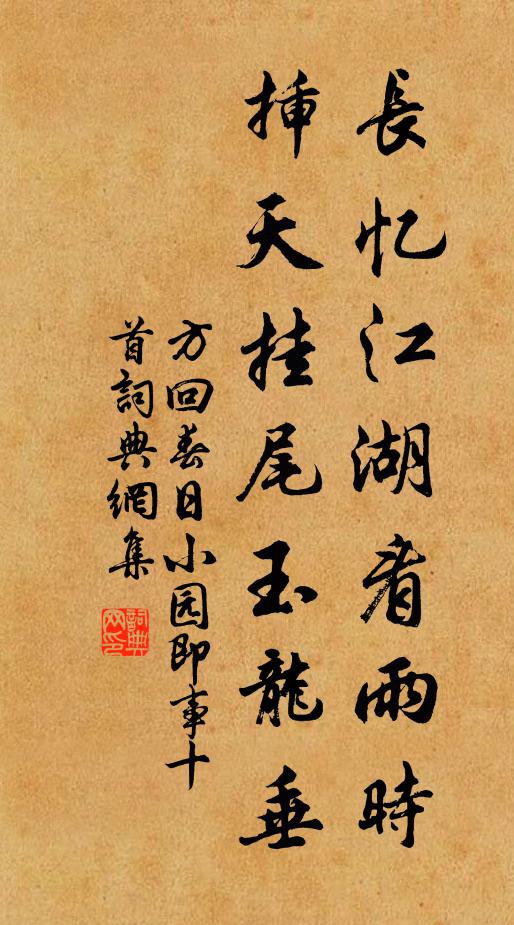 長忆江湖看雨時
插天挂尾玉龍垂
方回春日小园即事十
首詞典網集
詞典
网印